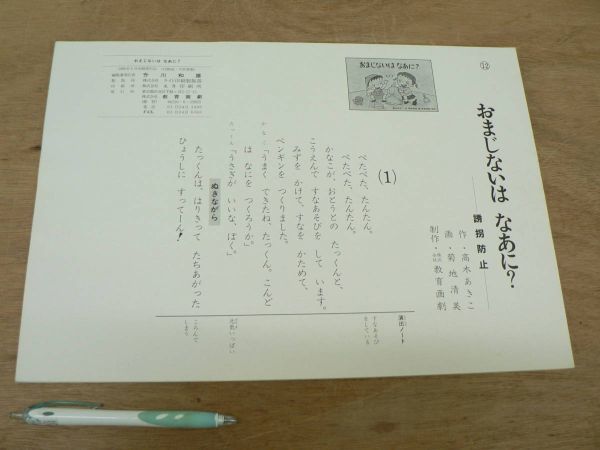 ⑫
おまじないは なあに?
誘拐防止
作・高木あきこ
画・菊地清美
制作・株式会社教育画劇
おまじないは なあに?
(1)
ぺたぺた、たんたん。
ぺたぺた、たんたん。
かなこが、おとうとの たっくんと、
こうえんで すなあそびを して います。
みずを かけて、すなを かためて、
ペンギンを つくりました。
かなこ「うまく できたね、たっくん。こんど
は なにを つくろうか。」
たっくん「うさぎが いいな、ぼく。」
ぬきながら
たっくんは、はりきって たちあがった
ひょうしに すってーん!
演出ノート
すなあそび
をしている
元気いっぱい
ころんで
しまう
おまじないは なあに?
今川和雄
教育画劇